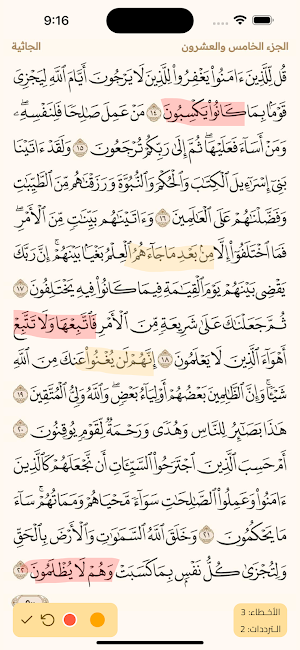 9:16
الجزء الخامس والعشرون
الجاثية
قُل لِّلَّذِينَ ءَامَنُوا۟ يَغْفِرُوا۟ لِلَّذِينَ لَا يَرْجُونَ أَيَّامَ ٱللَّهِ لِيَجْزِىَ
قَوْمًۢا بِمَا كَانُوا۟ يَكْسِبُونَ ١٤ مَنْ عَمِلَ صَٰلِحًا فَلِنَفْسِهِۦ
وَمَنْ أَسَآءَ فَعَلَيْهَا ثُمَّ إِلَىٰ رَبِّكُمْ تُرْجَعُونَ ١٥ وَلَقَدْ ءَاتَيْنَا
بَنِىٓ إِسْرَٰٓءِيلَ ٱلْكِتَٰبَ وَٱلْحُكْمَ وَٱلنُّبُوَّةَ وَرَزَقْنَٰهُم مِّنَ ٱلطَّيِّبَٰتِ
وَفَضَّلْنَٰهُمْ عَلَى ٱلْعَٰلَمِينَ ١٦ وَءَاتَيْنَٰهُم بَيِّنَٰتٍ مِّنَ ٱلْأَمْرِ
فَمَا ٱخْتَلَفُوٓا۟ إِلَّا مِنۢ بَعْدِ مَا جَآءَهُمُ ٱلْعِلْمُ بَغْيًۢا بَيْنَهُمْ إِنَّ رَبَّكَ
يَقْضِى بَيْنَهُمْ يَوْمَ ٱلْقِيَٰمَةِ فِيمَا كَانُوا۟ فِيهِ يَخْتَلِفُونَ ١٧
ثُمَّ جَعَلْنَٰكَ عَلَىٰ شَرِيعَةٍ مِّنَ ٱلْأَمْرِ فَٱتَّبِعْهَا وَلَا تَتَّبِعْ
أَهْوَآءَ ٱلَّذِينَ لَا يَعْلَمُونَ ١٨ إِنَّهُمْ لَن يُغْنُوا۟ عَنكَ مِنَ ٱللَّهِ
شَيْـًٔا وَإِنَّ ٱلظَّٰلِمِينَ بَعْضُهُمْ أَوْلِيَآءُ بَعْضٍ وَٱللَّهُ وَلِىُّ ٱلْمُتَّقِينَ ١٩
هَٰذَا بَصَٰٓئِرُ لِلنَّاسِ وَهُدًى وَرَحْمَةٌ لِّقَوْمٍ يُوقِنُونَ ٢٠
أَمْ حَسِبَ ٱلَّذِينَ ٱجْتَرَحُوا۟ ٱلسَّيِّـَٔاتِ أَن نَّجْعَلَهُمْ كَٱلَّذِينَ
ءَامَنُوا۟ وَعَمِلُوا۟ ٱلصَّٰلِحَٰتِ سَوَآءً مَّحْيَاهُمْ وَمَمَاتُهُمْ سَآءَ
مَا يَحْكُمُونَ ٢١ وَخَلَقَ ٱللَّهُ ٱلسَّمَٰوَٰتِ وَٱلْأَرْضَ بِٱلْحَقِّ
وَلِتُجْزَىٰ كُلُّ نَفْسٍۭ بِمَا كَسَبَتْ وَهُمْ لَا يُظْلَمُونَ ٢٢
الأخطاء: 3
الترددات: 2